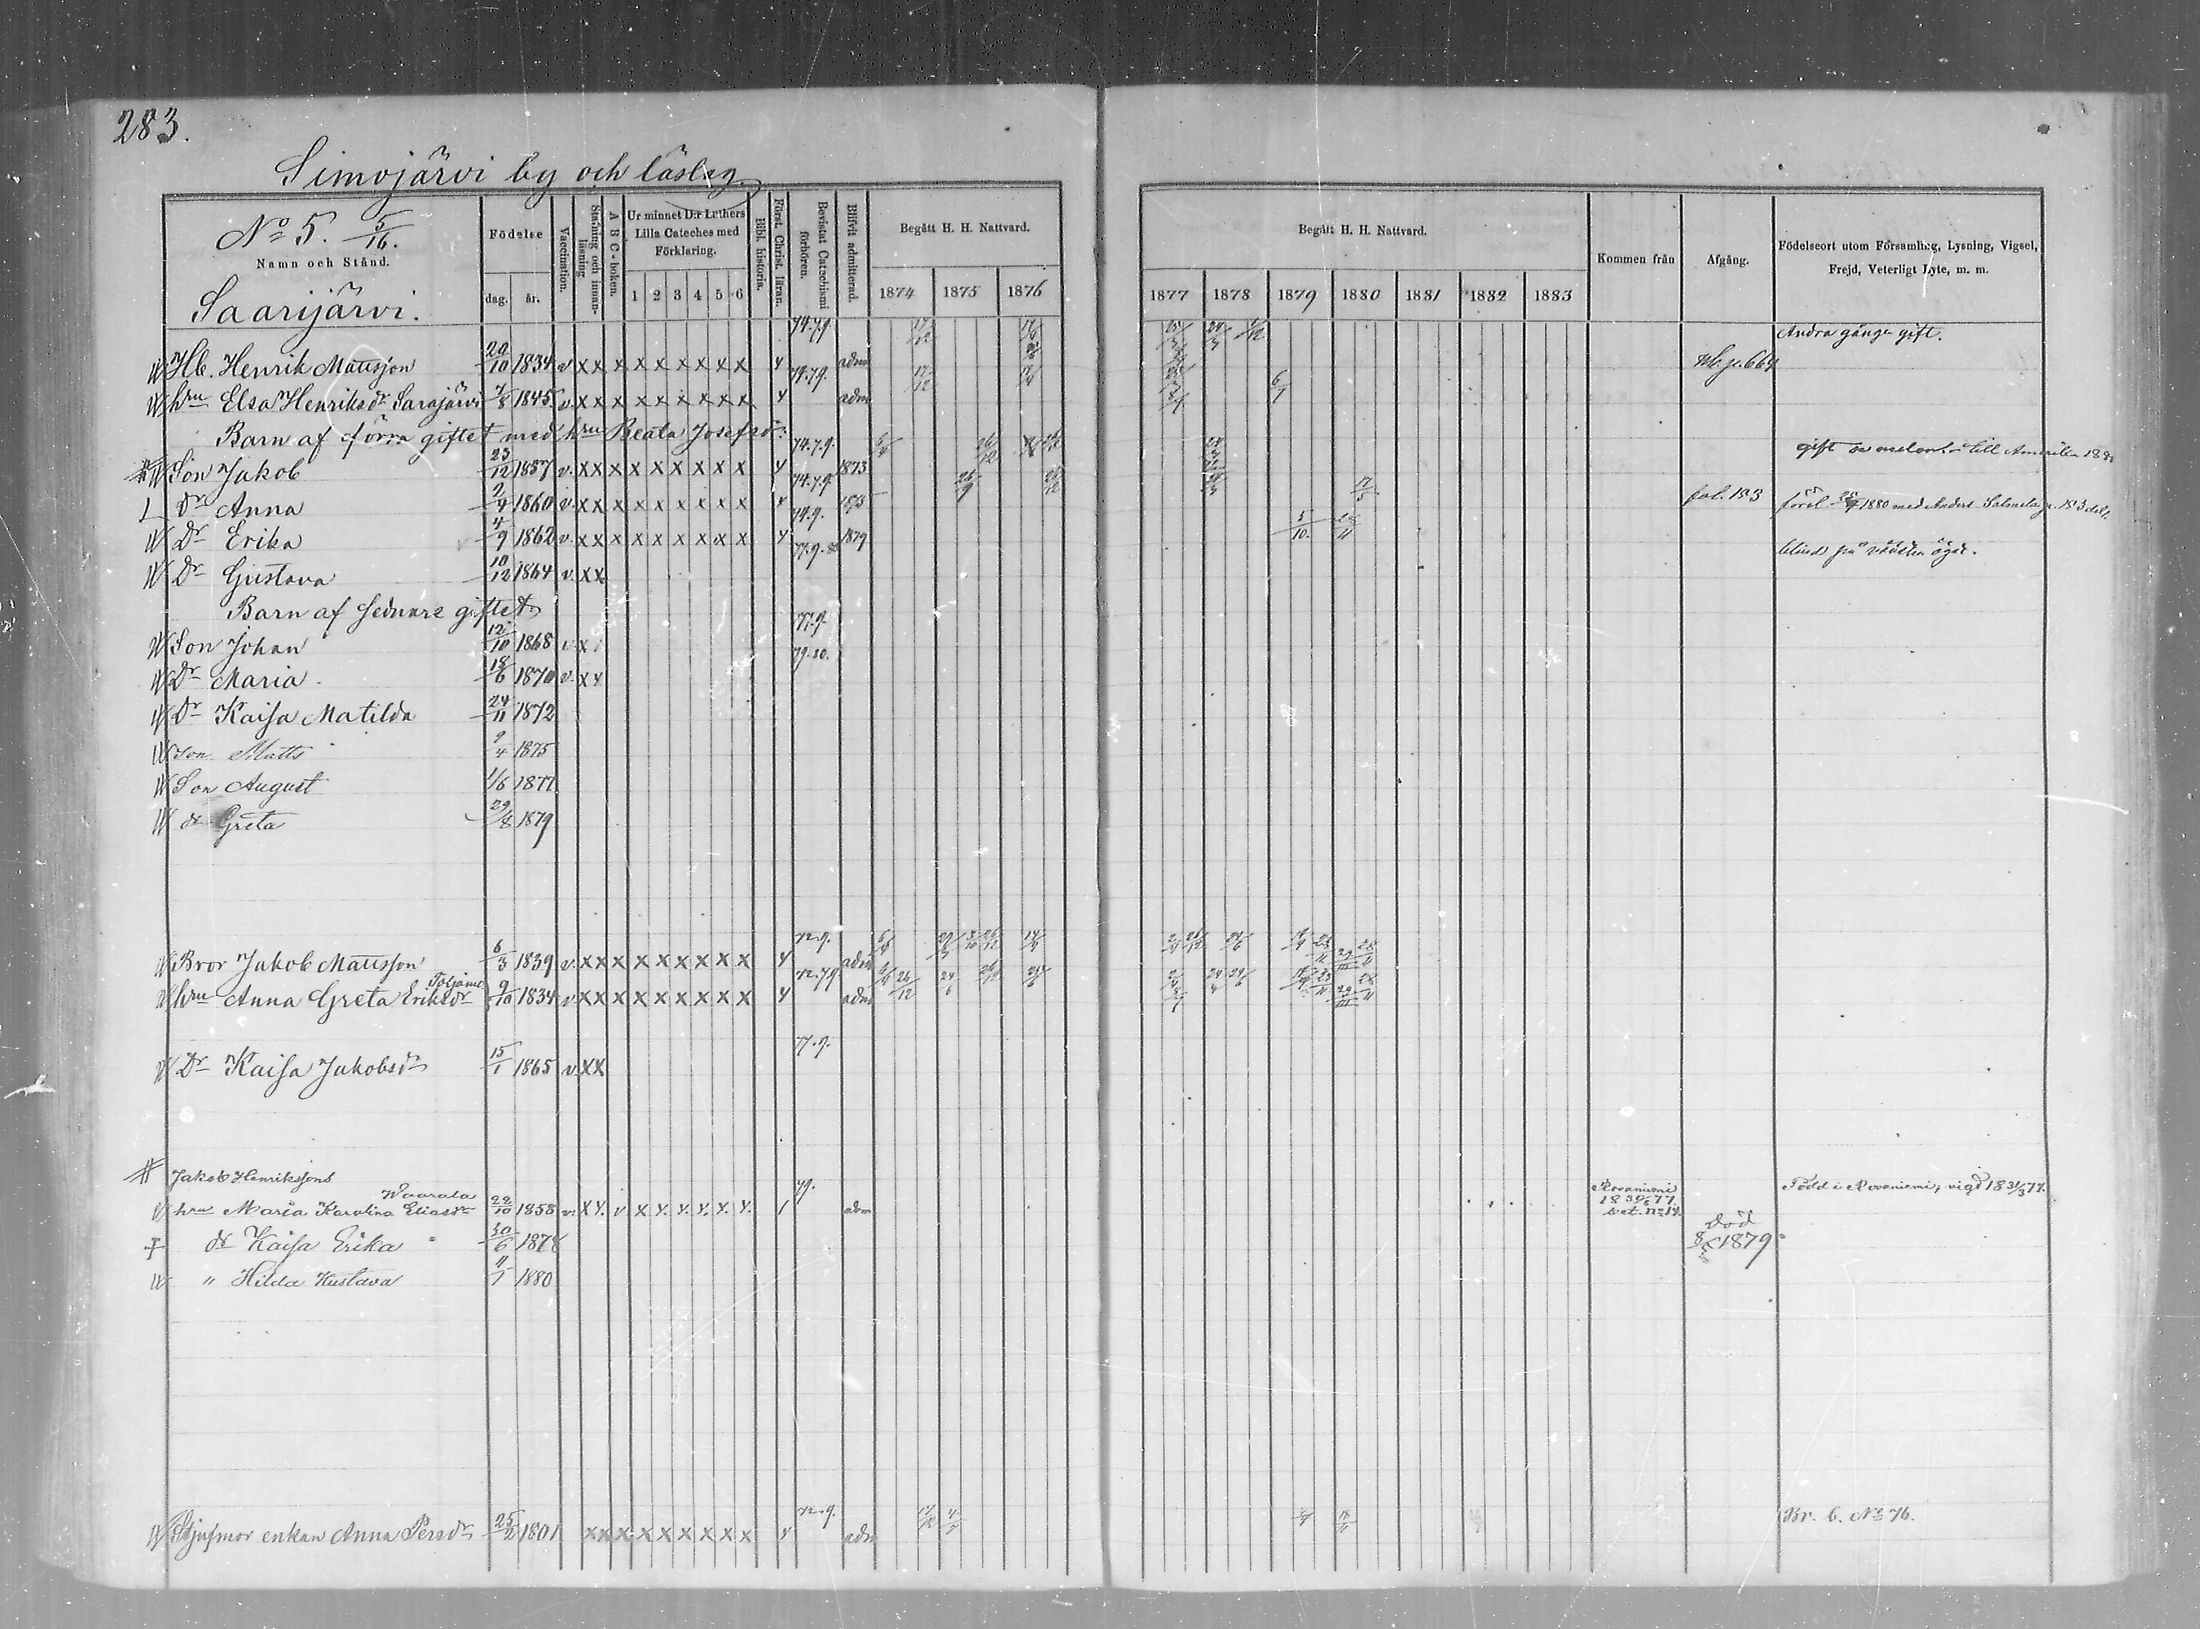 283.
Simojärvi by och läslag.
No 5. 5/16.
Namn och Stånd.
Saarijärvi.
Födelse
dag. år.
Vaccination.
Stafning och innanläsning
A B C-boken.
Ur minnet D:r Luthers Lilla Cateches med Förklaring.
1 2 3 4 5 6
Bibl. historia.
Först. Christ. läran.
Bevistat Catechismi förhören.
Blifvit admitterad.
Begått H. H. Nattvard.
1874 1875 1876
Begått H. H. Nattvard.
1877 1878 1879 1880 1881 1882 1883
Kommen från
Afgång.
Födelseort utom Församling, Lysning, Vigsel, Frejd, Veterligt Lyte, m. m.
Hb. Henrik Mattsson 20/10 1834 v x x x x x x x x x 4 74.7.9. adm Andra gånge gift.
hru Elsa Henriksdr Sarajärvi 7/8 1845 v. x x x x x x x x x 4 74.7.9. adm 6/7
Barn af förra giftet med hru Beata Josefsdr:
Son Jakob 23/12 1857 v. x x x x x x x x x 4 74.7.9. 1873 gift till Amerika
dr Anna 2/4 1860 v. x x x x x x x x x 4 74.7.9. 1875 17/5 fol. 183 1880 med Anders
Dr Erika 4/9 1862 v. x x x x x x x x x 4 74.9. 1879 5/10. blind på venstra ögat.
Dr Gustava 10/12 1864 v. x x 77.9.80
Barn af sednare giftet
Son Johan 12/10 1868 v. x 77.9.
Dr Maria 18/6 1870 v. x x 79.80.
Dr Kaisa Matilda 24/11 1872
Son Matts 9/4 1875
Son August 1/6 1877
dr Greta 29/8 1879
Bror Jakob Mattsson 6/3 1839 v. x x x x x x x x x 4 72.9. adm
hru Anna Greta Eriksdr 9/10 1834 v. x x x x x x x x x 4 72.7.9. adm
Dr Kaisa Jakobsdr 15/1 1865 v. x x 77.9.
Jakob Henrikssons
Waarala
hru Maria Karolina Eliasdr 22/10 1858 v. x x. v x x. x. x. x. x. 1 79. adm Rovaniemi Född i Rovaniemi, vigd 18 31/3 77.
dr Kaisa Erika 30/6 1878 död 1879
" Hilda Kustava 1880
enkan Anna Persdr 25/2 1801 x x x x x x x x x 4 72.9. adm Br. b. No 76.